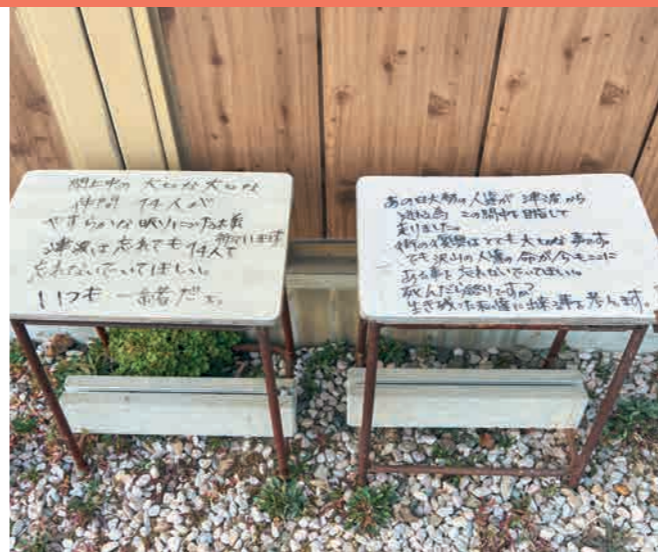 閖上中の 大切な大切な
仲間 14人が
やすらかな眠りにつけた様
祈っています
津波は忘れても 14人を
忘れないでいてほしい。
いつも 一緒だよ。
あの日大勢の人達が 津波から
この閖中を目指して
走りました。
街の復興はとても大切な事です。
でも沢山の人達の命が今もここに
ある事を忘れないでいてほしい。
死んだら終りですか?
生き残った私達に出来る事を考えます。